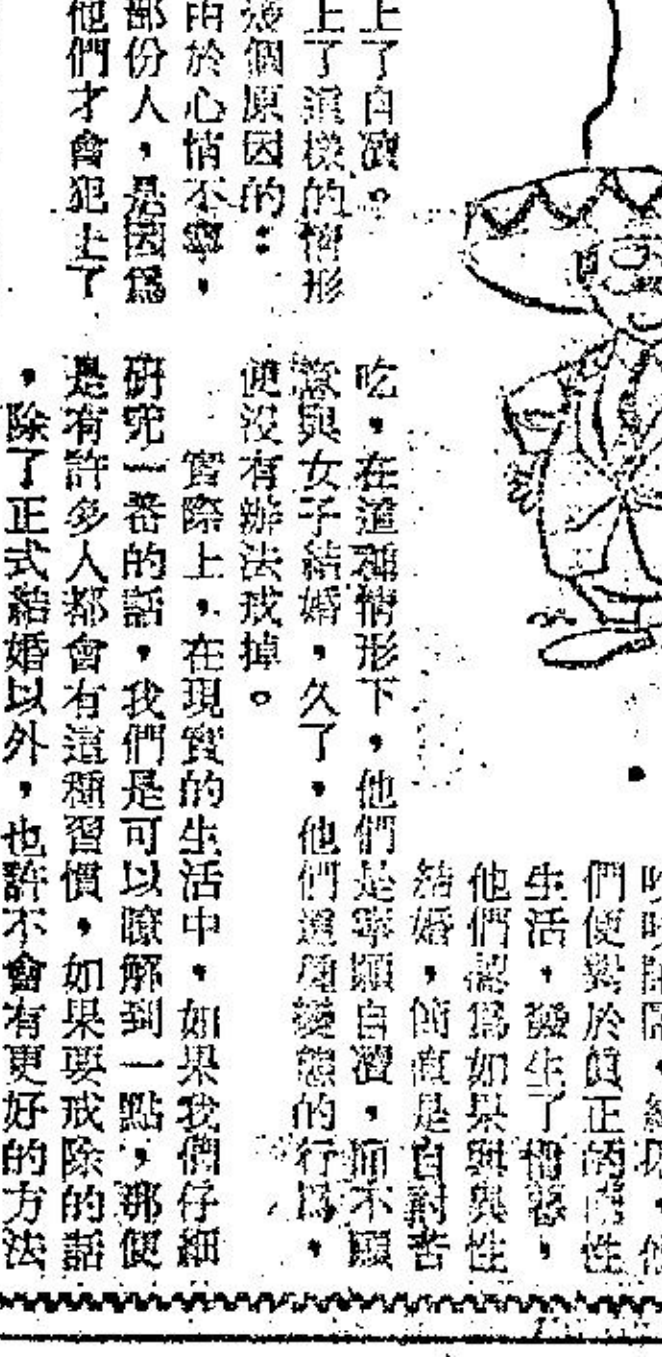 上了自瀆。
上了這樣的情形
幾個原因的：
由於心情不寧，
部份人，是因爲
他們才會犯上了
們便對於眞正的兩性
生活，發生了憎惡，
他們認爲如果與異性
結婚，簡直是自討苦
吃，在這種情形下，他們是寧願自瀆，而不願
意與女子結婚，久了，他們這種變態的行爲，
便沒有辦法戒掉。
實際上，在現實的生活中，如果我們仔細
研究一番的話，我們是可以瞭解到一點，那便
是有許多人都會有這種習慣，如果要戒除的話
，除了正式結婚以外，也許不會有更好的方法